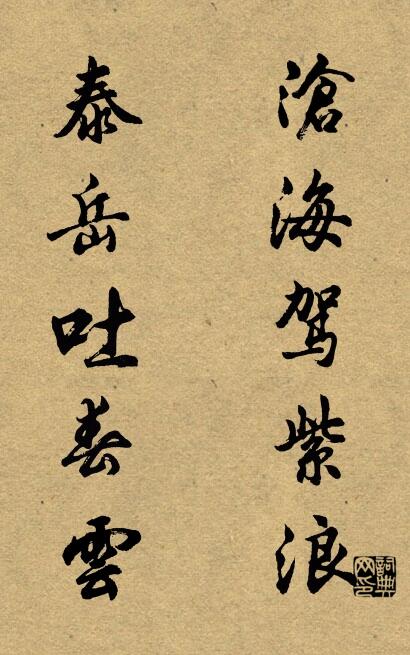 滄海駕紫浪
泰岳吐春雲
詞典
网印